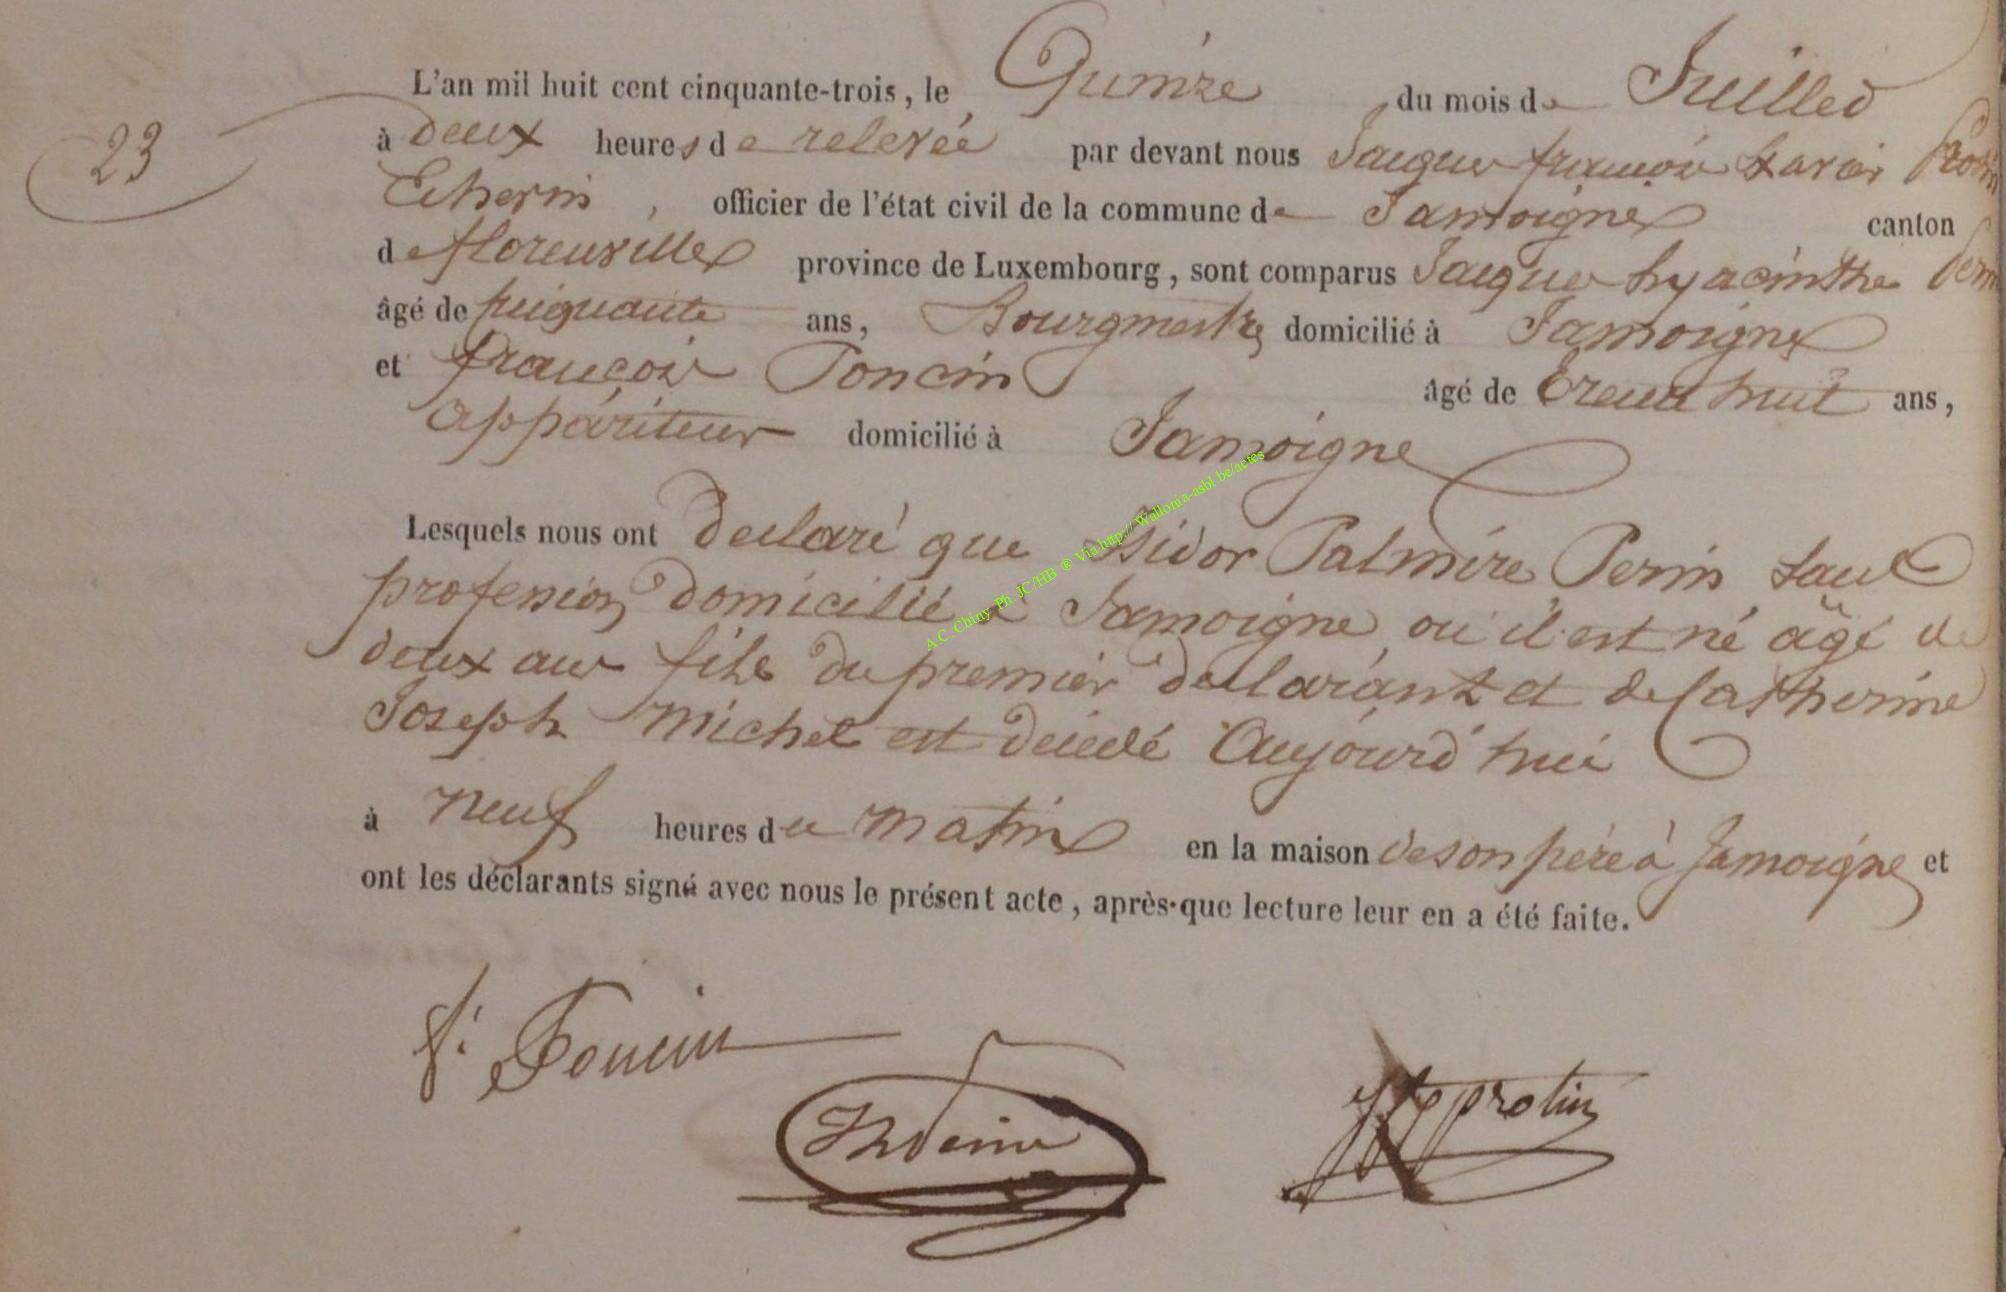 L'an mil huit cent cinquante-trois, le Quinze du mois de Juillet
23
à deux heures de relevée par devant nous Jacques françois Xavier
Echevin, officier de l'état civil de la commune de Jamoigne canton
de florenville province de Luxembourg, sont comparus Jacques hyacinthe
âgé de ans, Bourgmestre domicilié à Jamoigne
et françois Poncin âgé de trente huit ans,
appariteur domicilié à Jamoigne
Lesquels nous ont declaré que Isidor Palmire Perin sans
profession domicilié à Jamoigne où il est né âgé de
deux ans fils du premier declarant et de Catherine
Joseph Michel est décédé Aujourd'hui
à neuf heures du matin en la maison de son père à Jamoigne et
ont les déclarants signé avec nous le présent acte, après que lecture leur en a été faite.
f. Poncin
protin
A.C. Chiny Ph. JC/HB ® Via http://Wallonia-asbl.be/actes